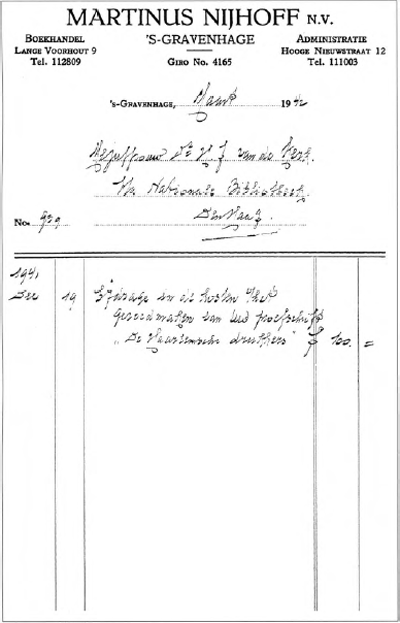 MARTINUS NIJHOFF N.V.
'S-GRAVENHAGE
BOEKHANDEL
LANGE VOORHOUT 9
TEL. 112809
GIRO NO. 4165
ADMINISTRATIE
HOOGE NIEUWSTRAAT 12
TEL. 111003
'S-GRAVENHAGE, Maart 1942
Mejuffrouw Dr. v. de Kerk.
Nationale Bibliotheek.
Den Haag.
No. 939
1941
Dec 19 Bijdrage in de kosten v/h et
Gereedmaken van Uw proefschrift
„De Haarlemsche drukkers" f 100. =